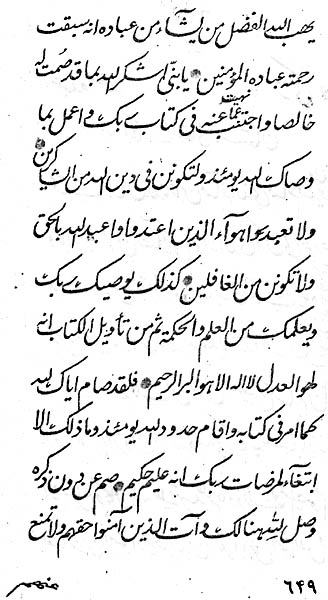 يهب الله الفضل من يشآء من عباده انه سبقت
رحمته عباده المؤمنين يابني اشكر الله بما قد صمت له
خالصا واجتنب عما نهيت عنه في كتاب ربك واعمل بما
وصاك الله يومئذ ولتكونن في دين الله من الشاكرين
ولا تعبدوا اهوآء الذين اعتدوا واعبد الله بالحق
ولا تكونن من الغافلين كذلك يوصيك ربك
ويعلمك من العلم والحكمة ثم من تأويل الكتاب انه
لهو العدل لا اله الا هو البر الرحيم فلقد صام اياك لله
كما امر في كتابه واقام حدود الله يومئذ وما ذلك الا
ابتغآء لمرضات ربك انه عليم حكيم صم عن دون ذكره
وصل لله هنالك وآت الذين آمنوا حقهم ولا تمنع
٦٤٩ منهم